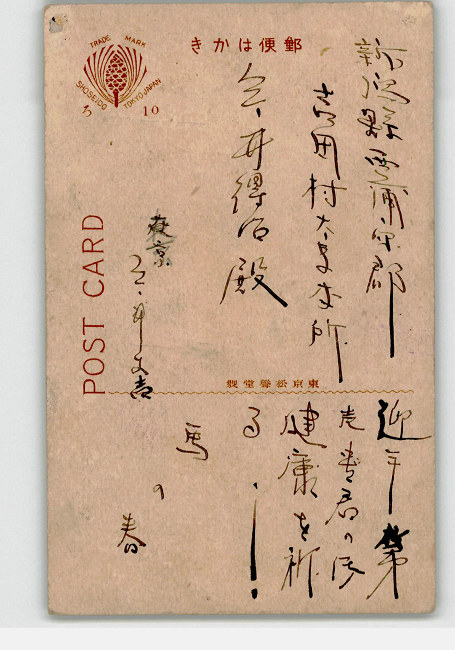 郵便はかき
TRADE MARK
SHOSEIDO TOKYO JAPAN
ろ 10
POST CARD
新潟縣西蒲原郡
吉田村大字本所
今井得治殿
東京
今井文吉
東京松聲堂製
迎年第
先貴君の御
健康を祈
る!
馬の春